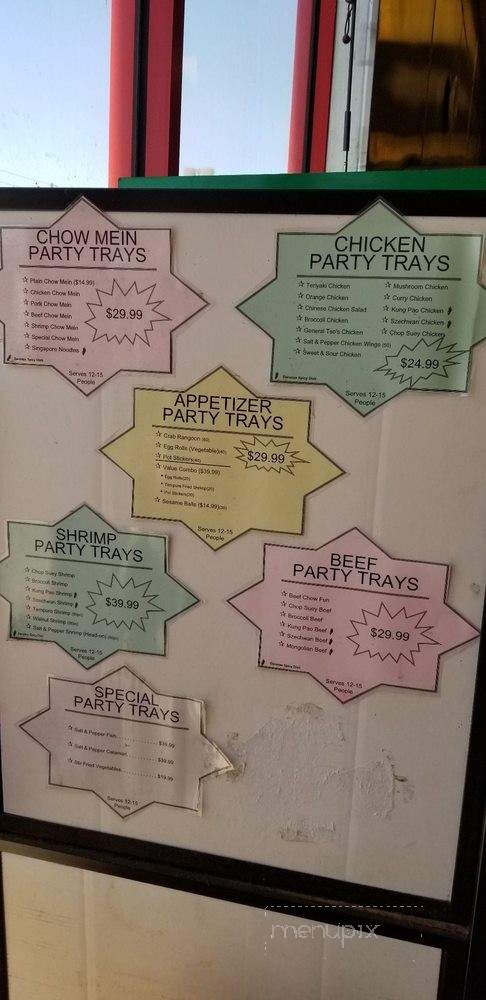 CHOW MEIN
PARTY TRAYS
☆ Plain Chow Mein ($14.99)
☆ Chicken Chow Mein
☆ Pork Chow Mein
☆ Beef Chow Mein
☆ Shrimp Chow Mein
☆ Special Chow Mein
☆ Singapore Noodles
$29.99
Denotes Spicy Dish
Serves 12-15
People
CHICKEN
PARTY TRAYS
☆ Teriyaki Chicken
☆ Orange Chicken
☆ Chinese Chicken Salad
☆ Broccoli Chicken
☆ General Tso's Chicken
☆ Salt & Pepper Chicken Wings (50)
☆ Sweet & Sour Chicken
☆ Mushroom Chicken
☆ Curry Chicken
☆ Kung Pao Chicken
☆ Szechwan Chicken
☆ Chop Suey Chicken
$24.99
Denotes Spicy Dish
Serves 12-15
People
APPETIZER
PARTY TRAYS
☆ Crab Rangoon (60)
☆ Egg Rolls (Vegetable)(40)
☆ Pot Stickers(40)
☆ Value Combo ($39.99)
• Egg Rolls(20)
• Tempura Fried Shrimp(20)
• Pot Stickers(20)
☆ Sesame Balls ($14.99)
$29.99
Serves 12-15
People
SHRIMP
PARTY TRAYS
☆ Chop Suey Shrimp
☆ Broccoli Shrimp
☆ Kung Pao Shrimp
☆ Szechwan Shrimp
☆ Tempura Shrimp
☆ Walnut Shrimp
☆ Salt & Pepper Shrimp (Head-on)
$39.99
Denotes Spicy Dish
Serves 12-15
People
BEEF
PARTY TRAYS
☆ Beef Chow Fun
☆ Chop Suey Beef
☆ Broccoli Beef
☆ Kung Pao Beef
☆ Szechwan Beef
☆ Mongolian Beef
$29.99
Denotes Spicy Dish
Serves 12-15
People
SPECIAL
PARTY TRAYS
☆ Salt & Pepper Fish . . . . . . . . . . . . $39.99
☆ Salt & Pepper Calamari . . . . . . . . . $39.99
☆ Stir Fried Vegetables . . . . . . . . . . . $19.99
Serves 12-15
People
menupix